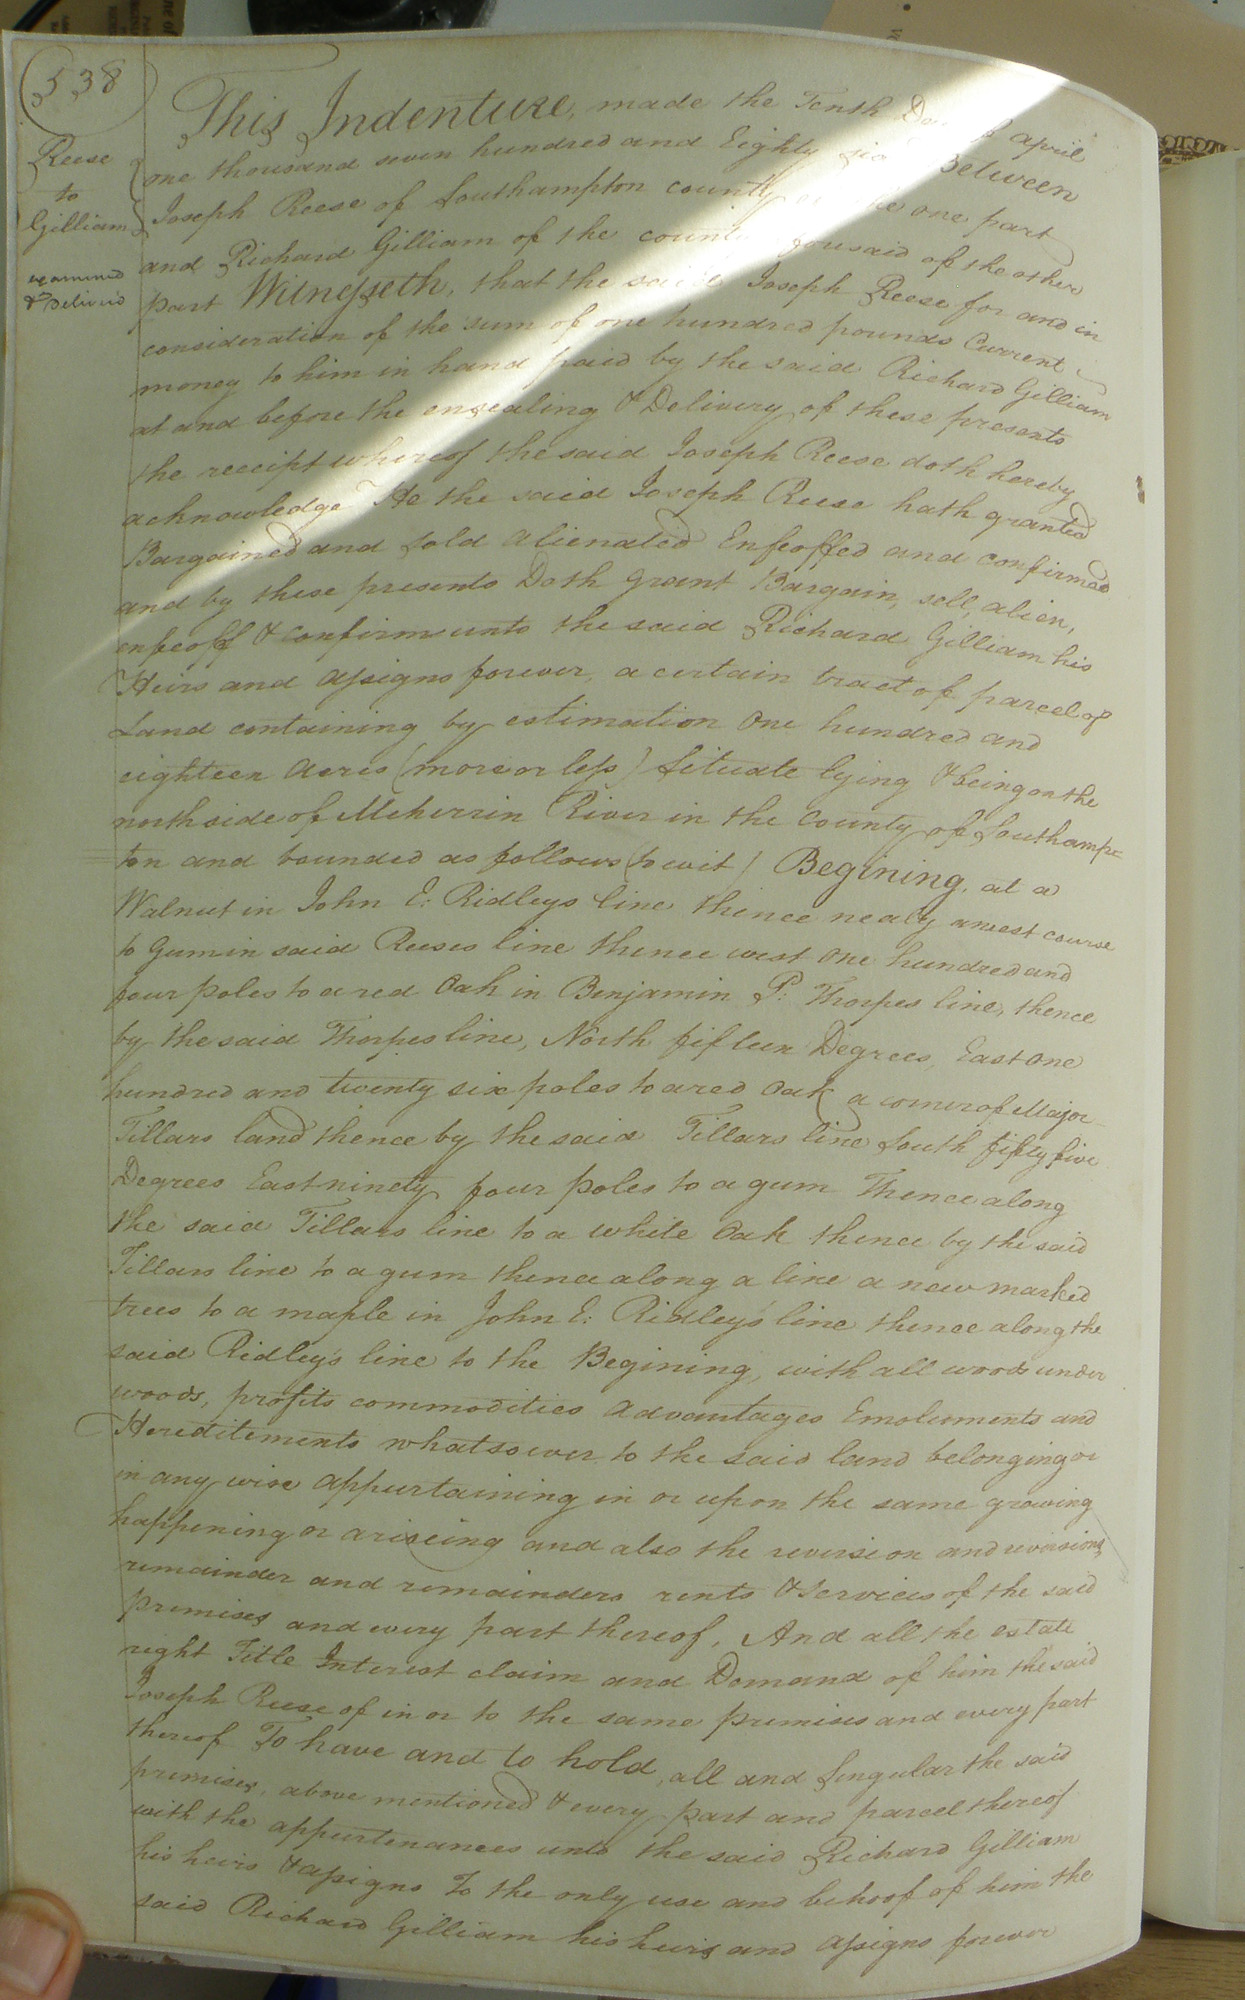 538
Reese
to
Gilliam
examined
& Deliver'd
This Indenture, made the Tenth Day of april
one thousand seven hundred and Eighty six Between
Joseph Reese of Southampton county of the one part
and Richard Gilliam of the county aforesaid of the other
part Witnesseth, that the said Joseph Reese for and in
consideration of the sum of one hundred pounds Current
money to him in hand paid by the said Richard Gilliam
at and before the ensealing & Delivery of these presents
the receipt whereof the said Joseph Reese doth hereby
acknowledge He the said Joseph Reese hath granted
Bargained and sold alienated Enfeoffed and confirmed
and by these presents Doth grant Bargain, sell, alien,
enfeoff & confirm unto the said Richard Gilliam his
Heirs and assigns forever, a certain tract of parcel of
Land containing by estimation One hundred and
eighteen acres (more or less) situate lying & being on the
north side of Meherrin River in the County of Southamp=
ton and bounded as follows (to wit) Begining, at a
Walnut in John E: Ridleys line thence nealy a west course
to gum in said Reeses line thence west one hundred and
four poles to a red Oak in Benjamin P: Thorpes line, thence
by the said Thorpes line, North fifteen Degrees, East one
hundred and twenty six poles to a red Oak a corner of Major
Tillars land thence by the said Tillars line South fifty five
Degrees East ninety four poles to a gum Thence along
the said Tillars line to a white Oak thence by the said
Tillars line to a gum thence along a line a new marked
trees to a maple in John E: Ridley's line thence along the
said Ridley's line to the Begining, with all woods under
woods, profits commodities advantages Emoluments and
Hereditements whatsoever to the said land belonging or
in any wise appurtaining in or upon the same growing
happening or ariseing and also the reversion and reversions,
remainder and remainders rents & services of the said
premises and every part thereof, And all the estate
right Title Interest claim and Domand of him the said
Joseph Reese of in or to the same premises and every part
thereof To have and to hold, all and singular the said
premises, above mentioned & every part and parcel thereof
with the appurtenances unto the said Richard Gilliam
his heirs & assigns To the only use and behoof of him the
said Richard Gilliam his heirs and assigns forever